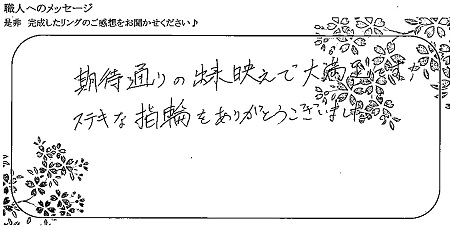 職人へのメッセージ
是非 完成したリングのご感想をお聞かせください♪
期待通りの出来映えで大満足ですv
ステキな指輪をありがとうございました